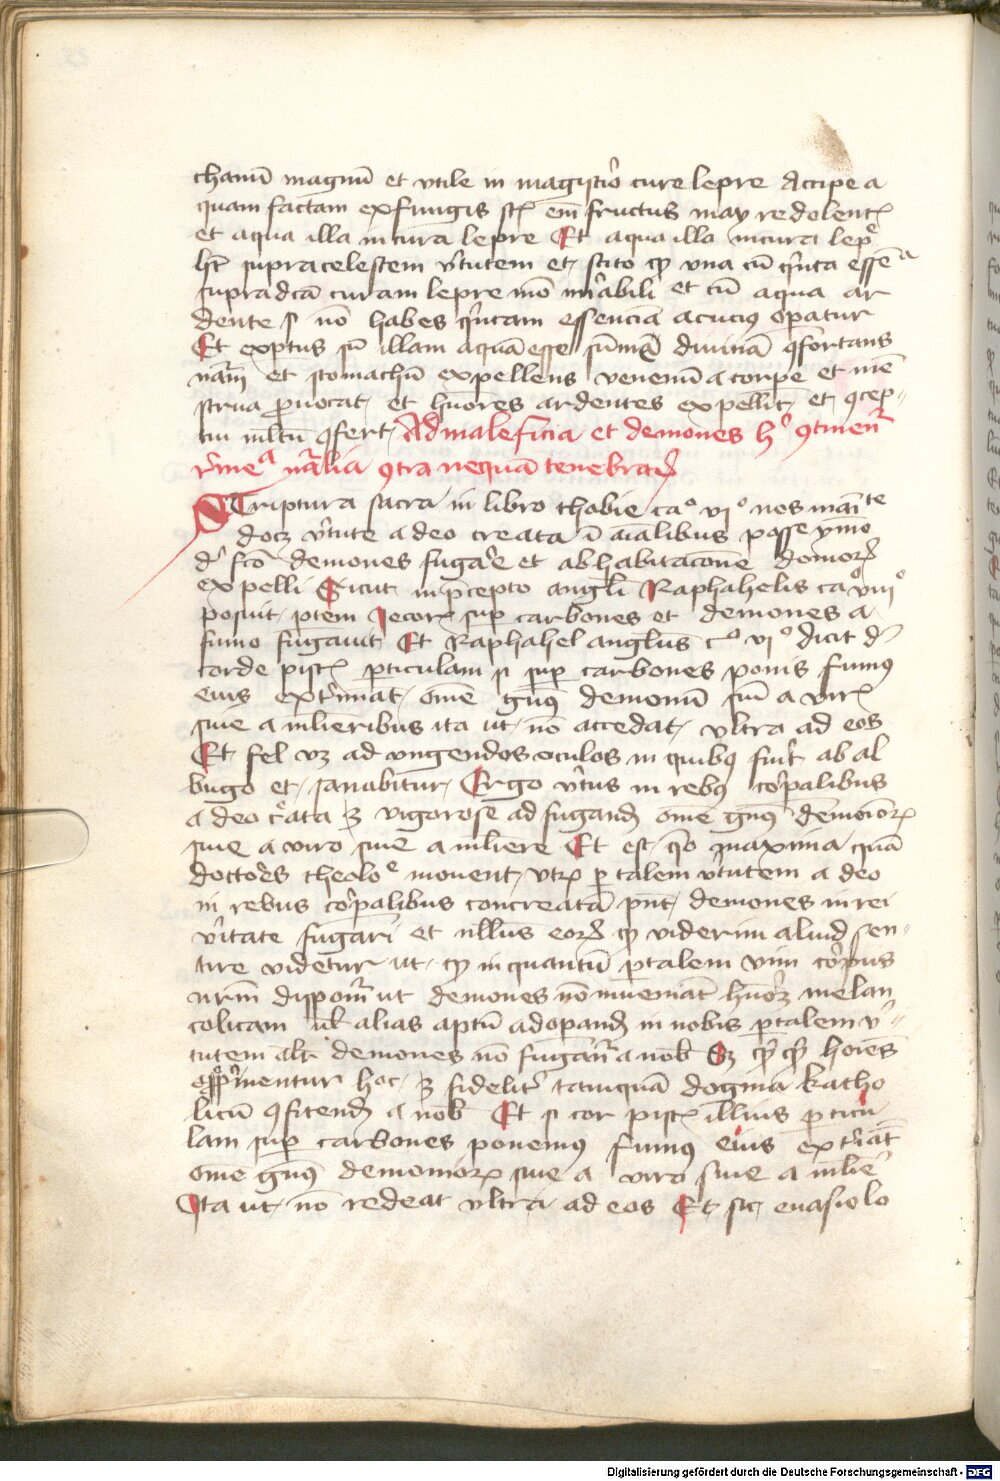 chanū magnū et vtile in magist'io cure lepre Accipe a
quam factam ex fungis st͛ em̄ fructus may redolent͛
et aqua illa in cura lepre Et aqua illa in cura lep͛
hꝫ supracelestem v'tutem et scito ꝙ vna cū q'nta essēᵃ
supradcā curam lepre mō mi'abili et cū aqua ar
dente si nō habes q'ntam essenciā acuciꝰ opatur
Et exptus sū illam aquā esse sūmā diuinā ꝯfortans
nām et stomachū expellens venenū a corpe et mē
strua ꝓuocat et hūores ardentes expellit et ꝯcep-
tui mltū ꝯfert Ad maleficia et demones hᵒ ꝯtinen̄
r'meᵃ nālia ꝯtra nequā tenebraꝝ
SCriptura sacra in libro thobie caᵒ vjᵒ nos manᵗᵉ
docꝫ v'tute a deo creata ī aīalibus posse ymo
d' fcō demones fuga'e et ab habitacōne domoꝝ
expelli Sicut in p̄cepto angl̄i Raphahelis caᵒ viijᵒ
posuit ptem Jecoꝝ sup carbones et demones a
fumo fugauit Et Raphahel anglus cᵒ vjᵒ dicit d'
corde pisc͛ pticulam si sup carbones ponis fumꝰ
eius ext'minat omē gn̄ꝰ demoniū siū a vir͛
siue a mlieribus ita ut nō accedat vltra ad eos
Et fel vꝫ ad vngendos oculos in quibꝰ fuit͛ ab al
bugo et sanabitur Ergo v'tus in rebꝰ co'palibus
a deo c'ata ꝫ vigorose ad fugand͛ omē gn̄ꝰ demonioꝝ
siue a viro siue a mliere Et est q̄o maxima quā
doctores theoloᵉ mouent vtꝝ p talem v'tutem a deo
in rebus co'palibus concreatā pn̄t demones in rei
v'itate fugari et nllūs eoꝝ ꝙ viderim aliud sen-
tire videtur ut ꝙ in quantū ptalem vim corpus
nrm̄ dispōit ut demones nō inueniāt hūoꝝ melan
colicam ul͛ alias aptū ad opand͛ in nobis ptalem v'-
tutem alr͛ demones nō fugānt a nob͛ Sꝫ hoīes
opp'mentur hoc ꝫ fidelit' tamquā dogma katho
licū ꝯfitend͛ a nob͛ Et si cor pisc͛ illius pticu
lam sup carbones ponemꝰ fumꝰ eius ext'īat
omē gn̄ꝰ demonioꝝ siue a viro siue a mlie'
Ita ut nō redeat vltra ad eos Et sic euasio lo
Digitalisierung gefördert durch die Deutsche Forschungsgemeinschaft - DFG